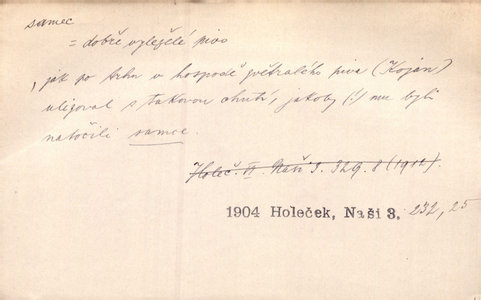 samec
= dobře vyleželé pivo
, jak po trhu v hospodě zvětralého piva (Koján)
uligoval s takovou chutí, jakoby (!) mu byli
natočili samce
Holeč. VI. Naši 3. 329. 8 (1912).
1904 Holeček, Naši 3. 232, 25